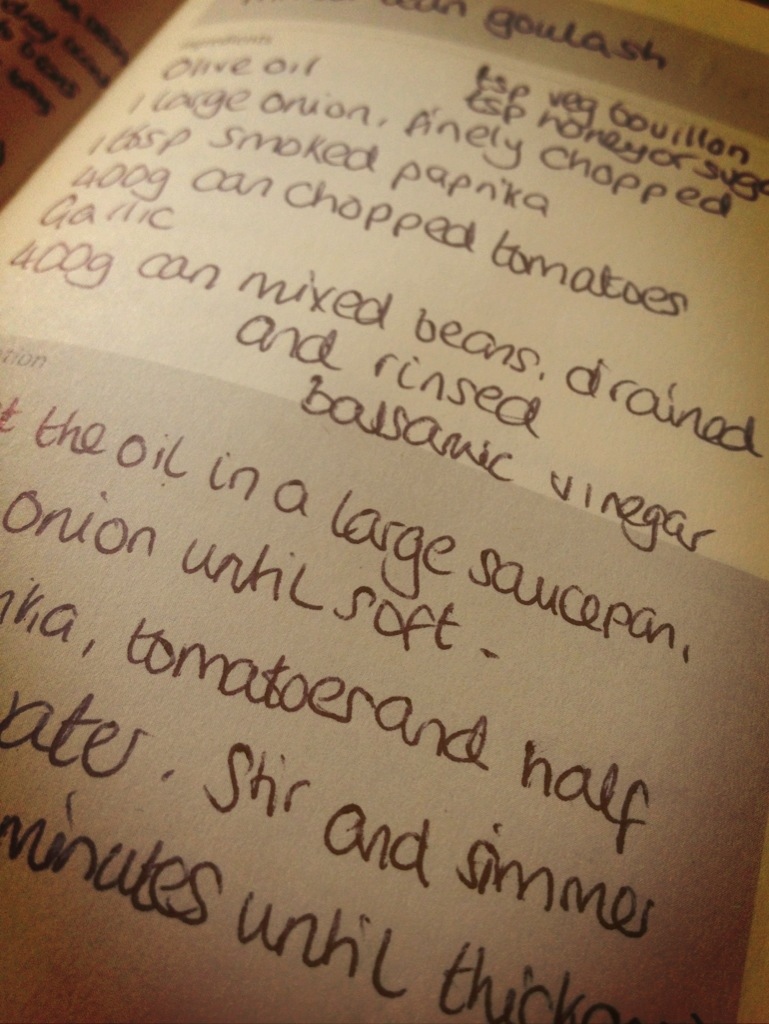 bean goulash
ingredients
Olive oil
tsp veg bouillon
tsp honey or suga
1 large onion, finely chopped
1 tbsp smoked paprika
400g can chopped tomatoes
Garlic
400g can mixed beans, drained
and rinsed
balsamic vinegar
tion
t the oil in a large saucepan,
onion until soft.
ika, tomatoes and half
ater. Stir and simmer
minutes until